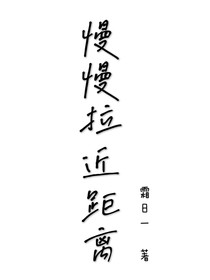 慢慢拉近距离
霜日一 著